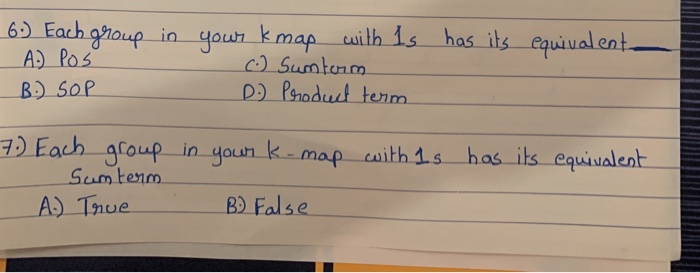 6:) Each group in your k map with 1s has its equivalent ___
A:) POS C:) Sumterm
B:) SOP D:) Product term
7:) Each group in your k-map with 1s has its equivalent
Sumterm
A:) True B:) False